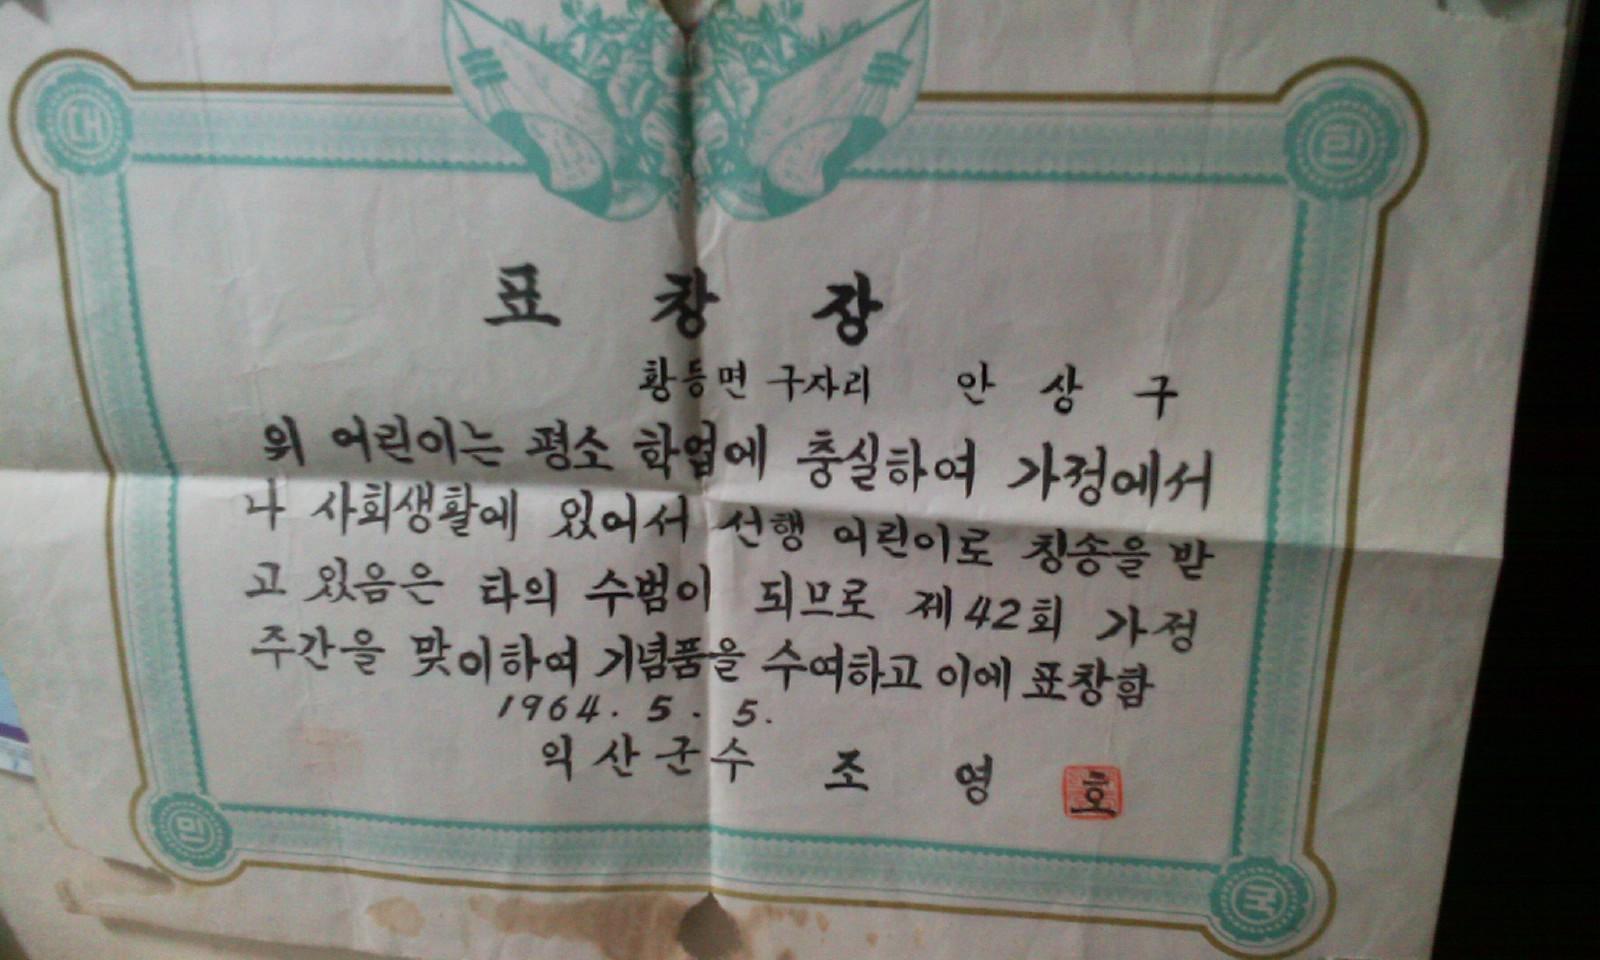 대 한
표 창 장
황등면 구자리 안 상 구
위 어린이는 평소 학업에 충실하여 가정에서
나 사회생활에 있어서 선행 어린이로 칭송을 받
고 있음은 타의 수범이 되므로 제42회 가정
주간을 맞이하여 기념품을 수여하고 이에 표창함
1964. 5. 5.
익산군수 조 영 호
민 국